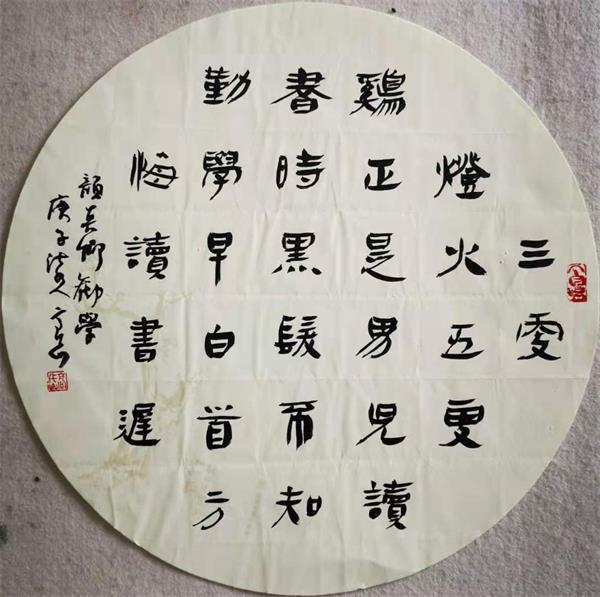 三更
燈火五更
鷄正是男兒讀
書時黑髮不知
勤學早白首方
悔讀書遲
顏真卿勸學
庚子